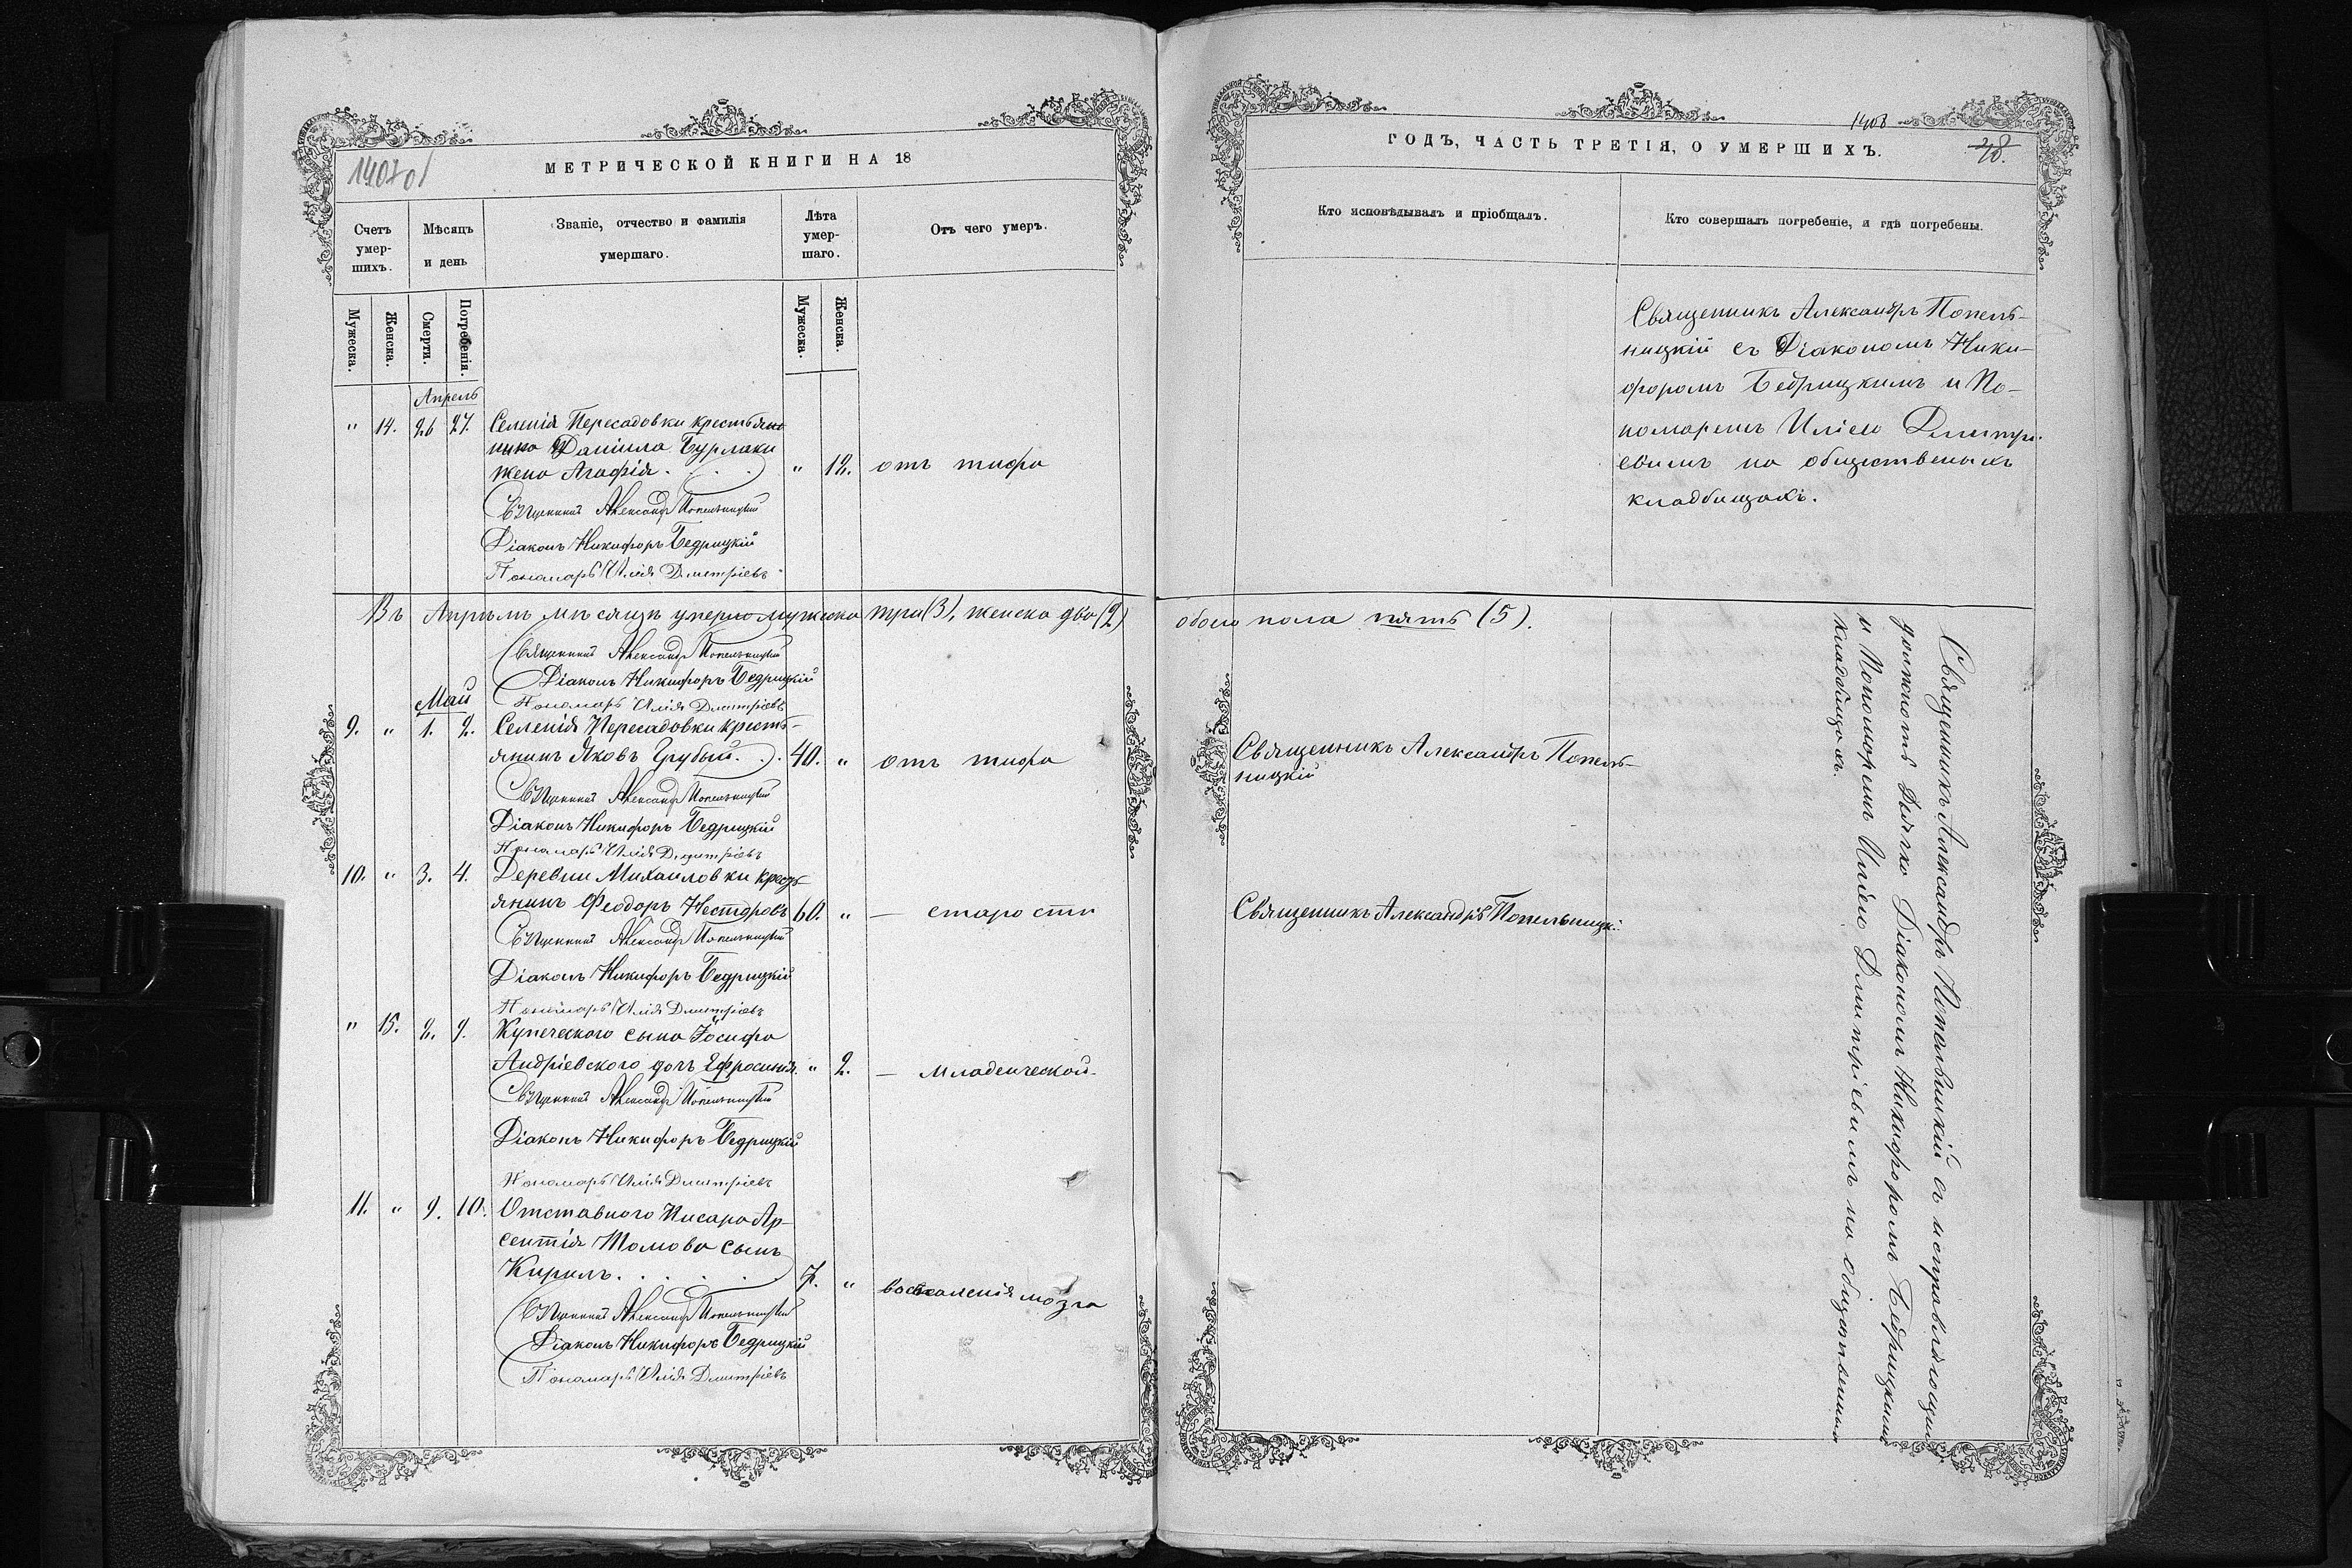 14070/
МЕТРИЧЕСКОЙ КНИГИ НА 18
Счетъ умер-шихъ.
Мѣсяцъ и день
Званіе, отчество и фамилія умершаго.
Лѣта умер-шаго.
Отъ чего умеръ.
Мужеска.
Женска.
Смерти.
Погребенія.
Мужеска.
Женска.
Апрель
" 14. 26 27. Селенія Пересадовки крестьяни
нина Даніила Бурлаки
жена Агафія . . . " 12. отъ тифа
Священникъ Александръ Попельницкій
Діаконъ Никифоръ Бедрицкій
Пономарь Илія Дмитріевъ
Въ Апрѣлѣ мѣсяцѣ умерло мужеска три (3), женска два (2)
Священникъ Александръ Попельницкій
Діаконъ Никифоръ Бедрицкій
Май
Пономарь Илія Дмитріевъ
9. " 1. 2. Селенія Пересадовки кресть-
янинъ Яковъ Грубый. . . 40. " отъ тифа
Священникъ Александръ Попельницкій
Діаконъ Никифоръ Бедрицкій
Пономарь Илія Дмитріевъ
10. " 3. 4. Деревни Михаиловки кресть-
янинъ Феодоръ Нестеровъ 60. " — старости
Священникъ Александръ Попельницкій
Діаконъ Никифоръ Бедрицкій
Пономарь Илія Дмитріевъ
" 15. 8. 9. Купеческого сына Іосифа
Андріевского дочь Ефросинія. " 2. — младенческой.
Священникъ Александръ Попельницкій
Діаконъ Никифоръ Бедрицкій
Пономарь Илія Дмитріевъ
11. " 9. 10. Отставного Писаря Ар-
сентія Томова сынъ
Кирилъ. . . . . 7. " воспаленія мозга
Священникъ Александръ Попельницкій
Діаконъ Никифоръ Бедрицкій
Пономарь Илія Дмитріевъ
1408
ГОДЪ, ЧАСТЬ ТРЕТІЯ, О УМЕРШИХЪ.
Кто исповѣдывалъ и пріобщалъ.
Кто совершалъ погребеніе, и гдѣ погребены.
Священникъ Александръ Попель-
ницкій съ Діакономъ Ники-
форомъ Бедрицкимъ и По-
номаремъ Иліею Дмитрі-
евымъ на общественыхъ
кладбищахъ.
обоего пола пять (5).
Священникъ Александръ Попель-
ницкій
Священникъ Александръ Попельницкі.
Священникъ Александръ Попельницкій съ исправляющимъ
должность Дьячка Діакономъ Никифоромъ Бедрицкимъ
и Пономаремъ Иліею Дмитріевымъ на общественныхъ
кладбищахъ.